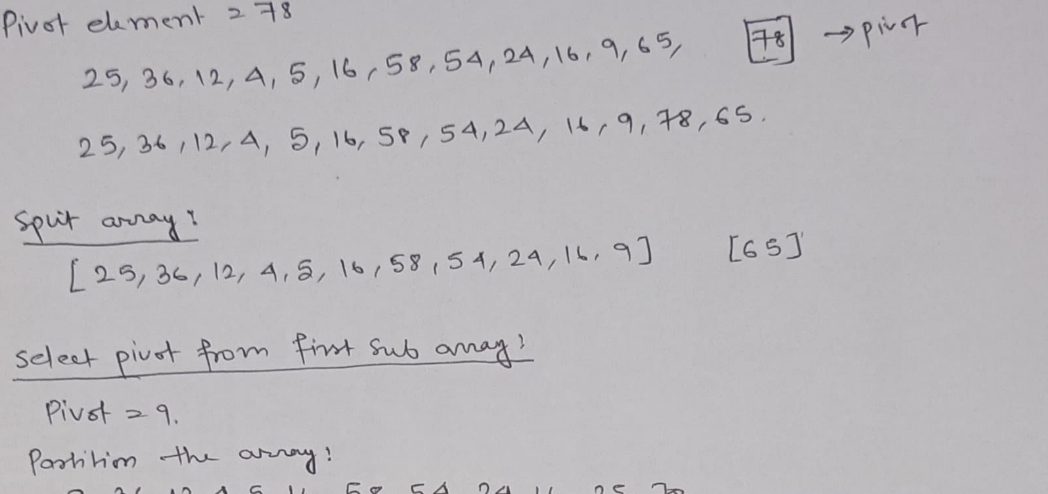 Pivot element = 78
25, 36, 12, 4, 5, 16, 58, 54, 24, 16, 9, 65, 78 → pivot
25, 36, 12, 4, 5, 16, 58, 54, 24, 16, 9, 78, 65.
Split array:
[25, 36, 12, 4, 5, 16, 58, 54, 24, 16, 9] [65]
Select pivot from first sub array:
Pivot = 9.
Partition the array: